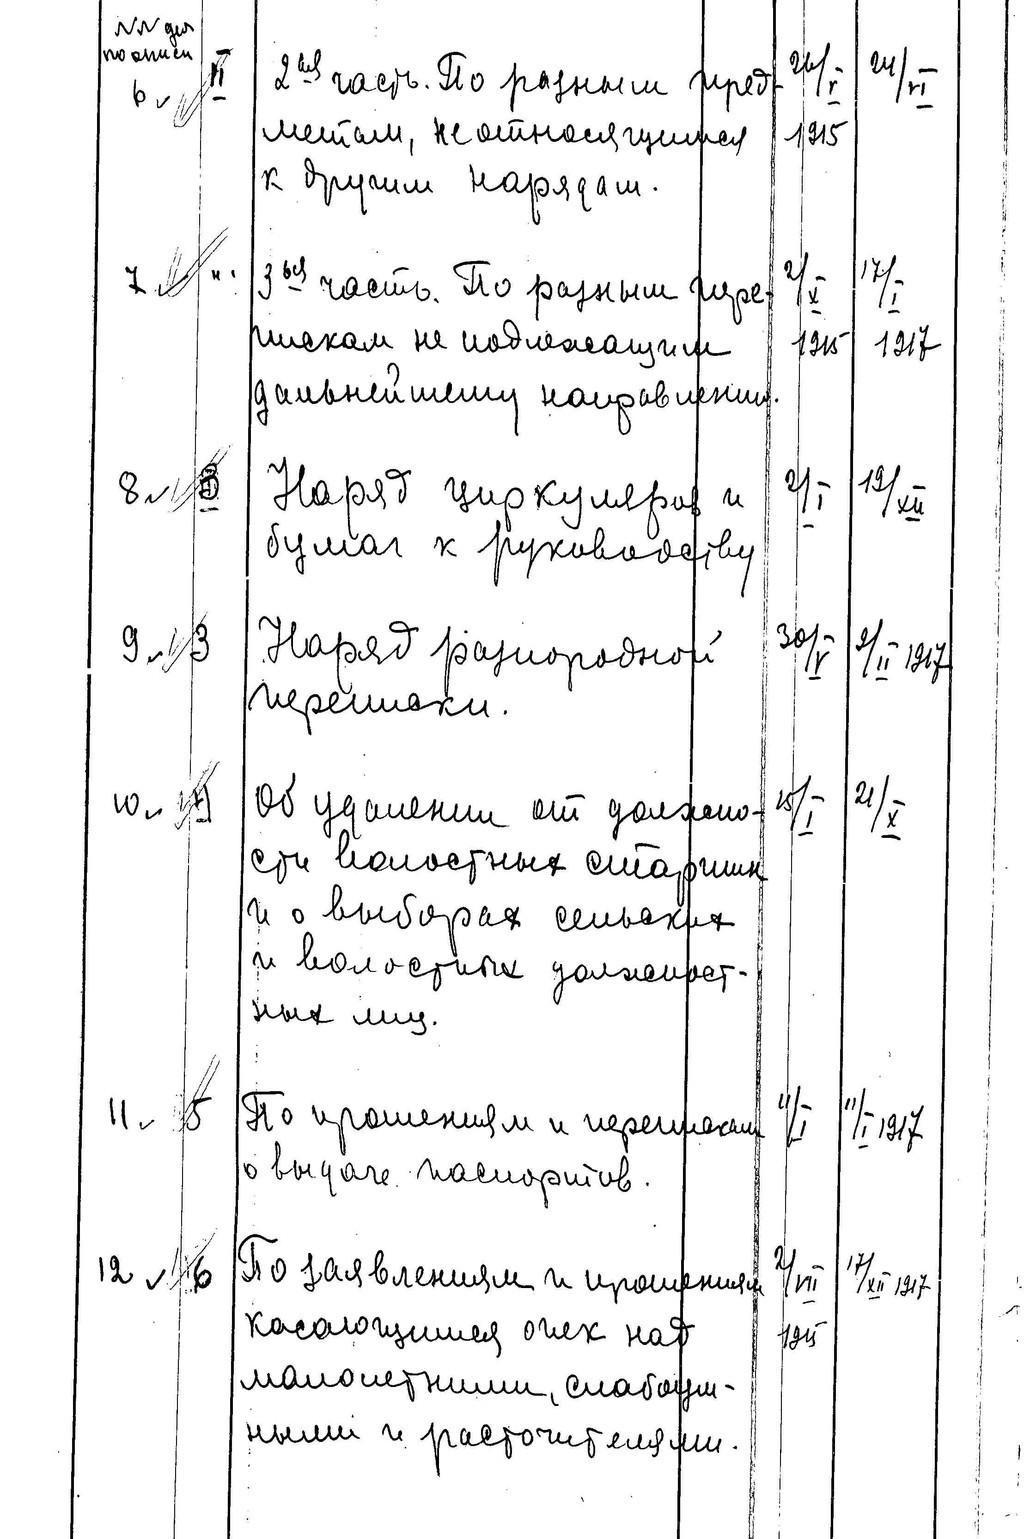 NN дел
по описи
6 II 2ая часть. По разным пред- 26/V 24/VI
метам, не относящимся 1915
к другим нарядам.
7 "" 3ья часть. По разным пере- 2/X 17/I
пискам не подлежащим 1915 1917
дальнейшему направлению.
8 Наряд циркуляров и 2/I 19/XII
бумаг к руководству
9 3 Наряд разнородной 30/V 9/II 1917
переписки.
10 4 Об удалении от должно- 15/I 21/X
сти волостных старшин
и о выборах сельских
и волостных должност-
ных лиц.
11 5 По прошениям и перепискам 11/I 11/I 1917
о выдаче паспортов.
12 6 По заявлениям и прошениям 2/VII 17/XII 1917
касающимся опек над 1915
малолетними, слабоум-
ными и расточителями.